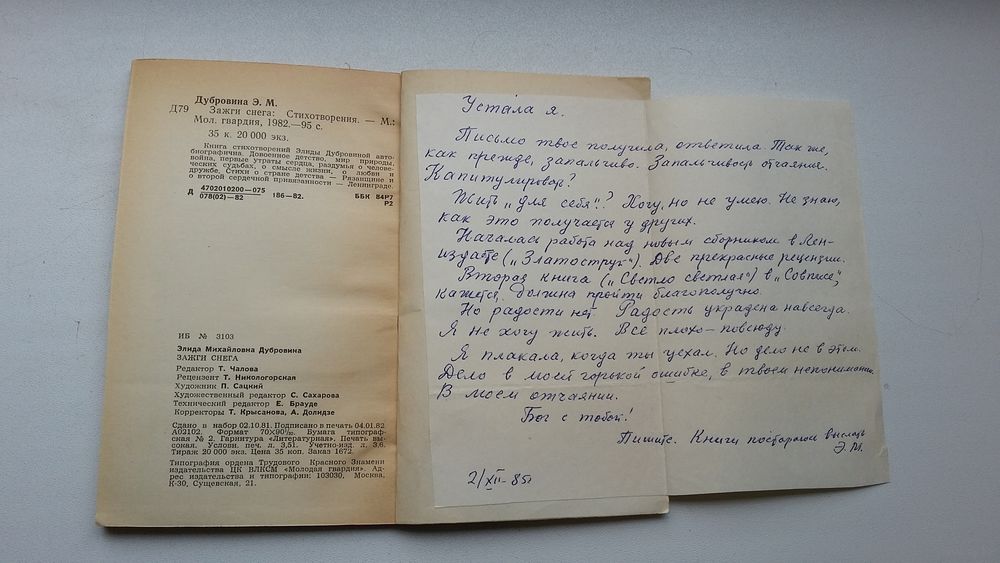 Дубровина Э. М.
Д79 Зажги снега: Стихотворения. — М.:
Мол. гвардия, 1982.—95 с.
35 к. 20 000 экз.
Книга стихотворений Элиды Дубровиной авто-
биографична. Довоенное детство, мир природы,
война, первые утраты сердца, раздумья о челове-
ческих судьбах, о смысле жизни, о любви и
дружбе. Стихи о стране детства — Рязанщине и
о второй сердечной привязанности — Ленинграде.
Д 4702010200—075
078(02)—82 186—82. ББК 84Р7
Р2
ИБ № 3103
Элида Михайловна Дубровина
ЗАЖГИ СНЕГА
Редактор Т. Чалова
Рецензент Т. Никологорская
Художник П. Сацкий
Художественный редактор С. Сахарова
Технический редактор Е. Брауде
Корректоры Т. Крысанова, А. Долидзе
Сдано в набор 02.10.81. Подписано в печать 04.01.82.
А02102. Формат 70×90¹/₃₂. Бумага типограф-
ская № 2. Гарнитура «Литературная». Печать вы-
сокая. Условн. печ. л. 3,51. Учетно-изд. л. 3,6.
Тираж 20 000 экз. Цена 35 коп. Заказ 1672.
Типография ордена Трудового Красного Знамени
издательства ЦК ВЛКСМ «Молодая гвардия». Ад-
рес издательства и типографии: 103030, Москва,
К-30, Сущевская, 21.
Устала я.
Письмо твое получила, ответила. Так же,
как прежде, запальчиво. Запальчивость отчаяния.
Капитулировать?
Жить „для себя"? Хочу, но не умею. Не знаю,
как это получается у других.
Началась работа над новым сборником в Лен-
издате („Златоструй"). Две прекрасные рецензии.
Вторая книга („Светло светлая") в „Совписе",
кажется, должна пройти благополучно.
Но радости нет. Радость украдена навсегда.
Я не хочу жить. Все плохо — повсюду.
Я плакала, когда ты уехал. Но дело не в этом.
Дело в моей горькой ошибке, в твоем непонимании.
В моем отчаянии.
Бог с тобой!
Пишите. Книги постараюсь выслать
Э.М.
2/XII-85г